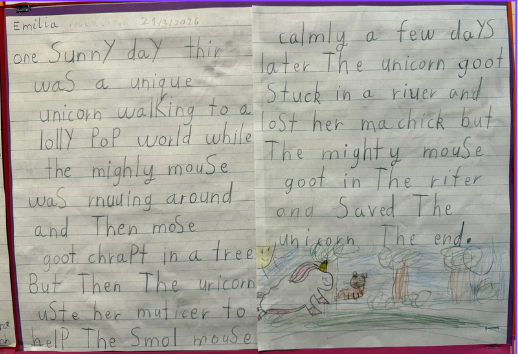 Emilia 21/3/2026
one Sunny day thir
was a unique
unicorn walking to a
lolly Pop world while
the mighly mouse
was rnuuing around
and Then mose
goot chrapt in a tree
But Then The uricorn
uste her muticer to
help The Smol mouse
calmly a few days
later The unicorn goot
Stuck in a riuer and
lost her ma chick but
The mighty mouse
goot in The rifer
and Saved The
unicorn The end.